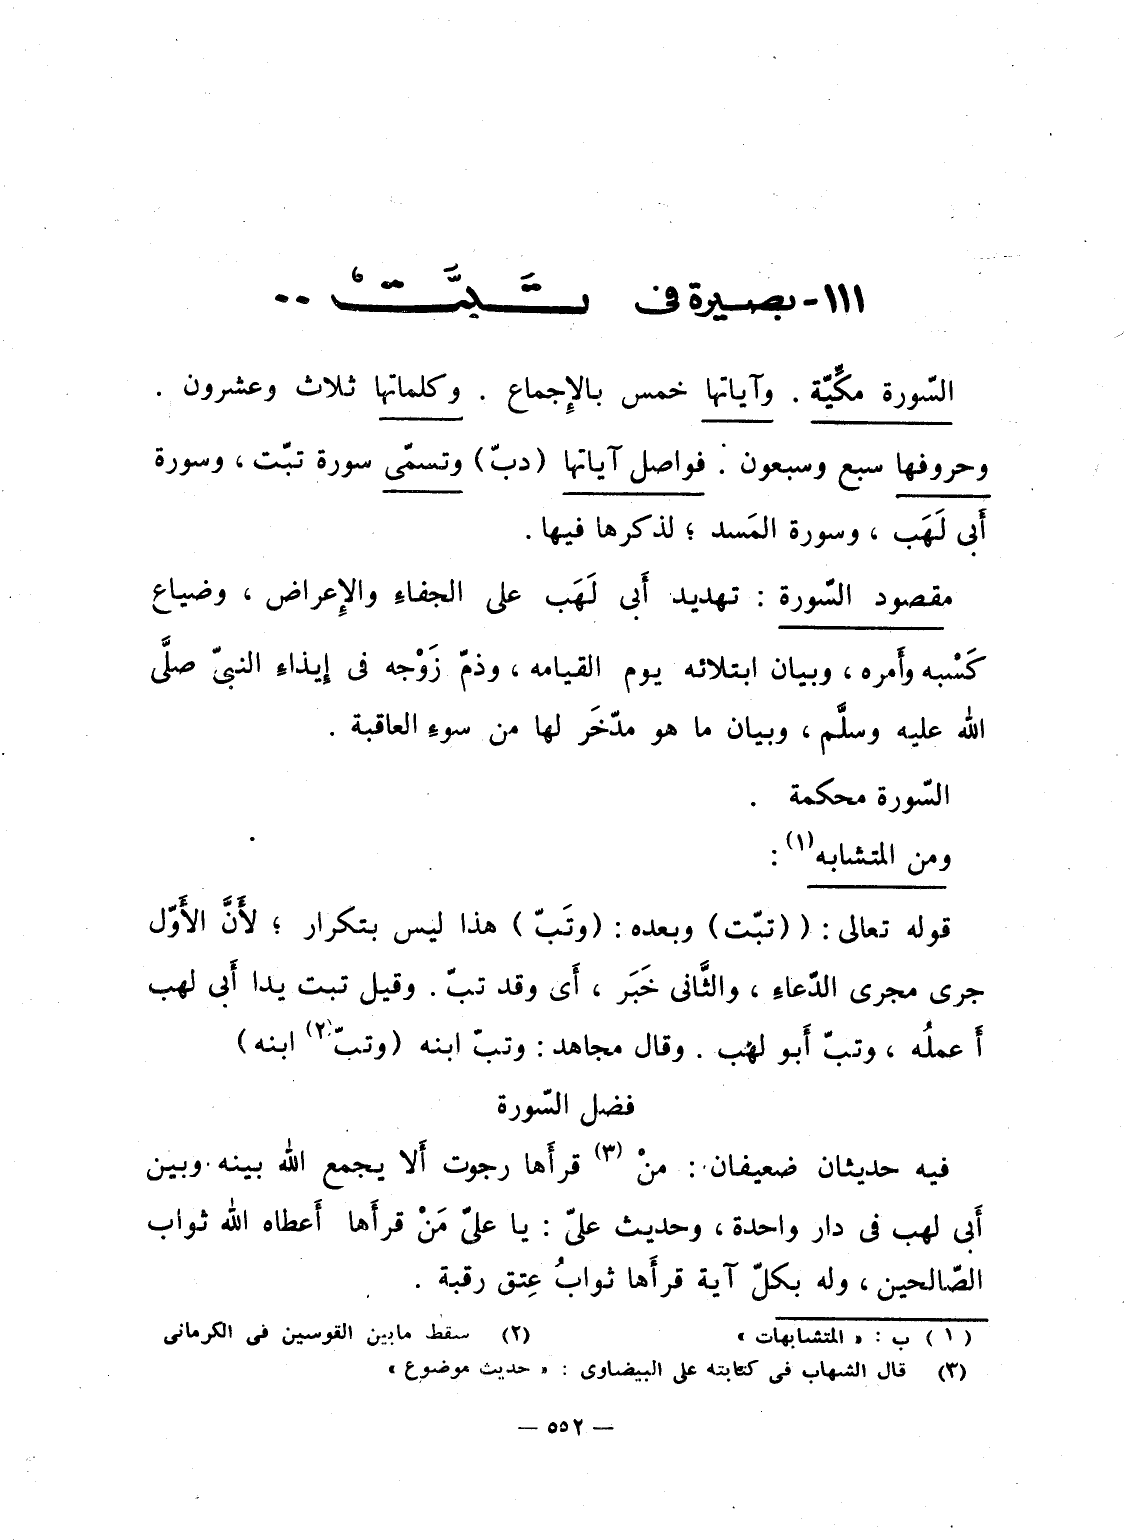 ١١١ - بصيرة فى تَبَّتْ . .
السّورة مكِّيّة . وآياتها خمس بالإِجماع . وكلماتها ثلاث وعشرون .
وحروفها سبع وسبعون . فواصل آياتها (دبّ) وتسمّى سورة تبّت ، وسورة
أَبى لَهَب ، وسورة المَسد ؛ لذكرها فيها .
مقصود السّورة : تهديد أَبى لَهَب على الجفاءِ والإِعراض ، وضياع
كَسْبه وأَمره ، وبيان ابتلائه يوم القيامه ، وذمّ زَوْجه فى إِيذاءِ النبىّ صلَّى
الله عليه وسلَّم ، وبيان ما هو مدّخَر لها من سوءِ العاقبة .
السّورة محكمة .
ومن المتشابه(١) :
قوله تعالى : ( (تبّت) وبعده : (وتَبّ ) هذا ليس بتكرار ؛ لأَنَّ الأَوّل
جرى مجرى الدّعاءِ ، والثَّانى خَبَر ، أَى وقد تبّ . وقيل تبت يدا أَبى لهب
أَ عملُه ، وتبّ أَبو لهب . وقال مجاهد : وتبّ ابنه (وتبّ(٢) ابنه)
فضل السّورة
فيه حديثان ضعيفان : منْ (٣) قرأَها رجوت أَلا يجمع الله بينه وبين
أَبى لهب فى دار واحدة ، وحديث علىّ : يا علىّ مَنْ قرأَها أَعطاه الله ثواب
الصّالحين ، وله بكلّ آية قرأَها ثوابُ عِتق رقبة .
(١) ب : « المتشابهات » (٢) سقط مابين القوسين فى الكرمانى
(٣) قال الشهاب فى كتابته على البيضاوى : « حديث موضوع »
— ٥٥٢ —